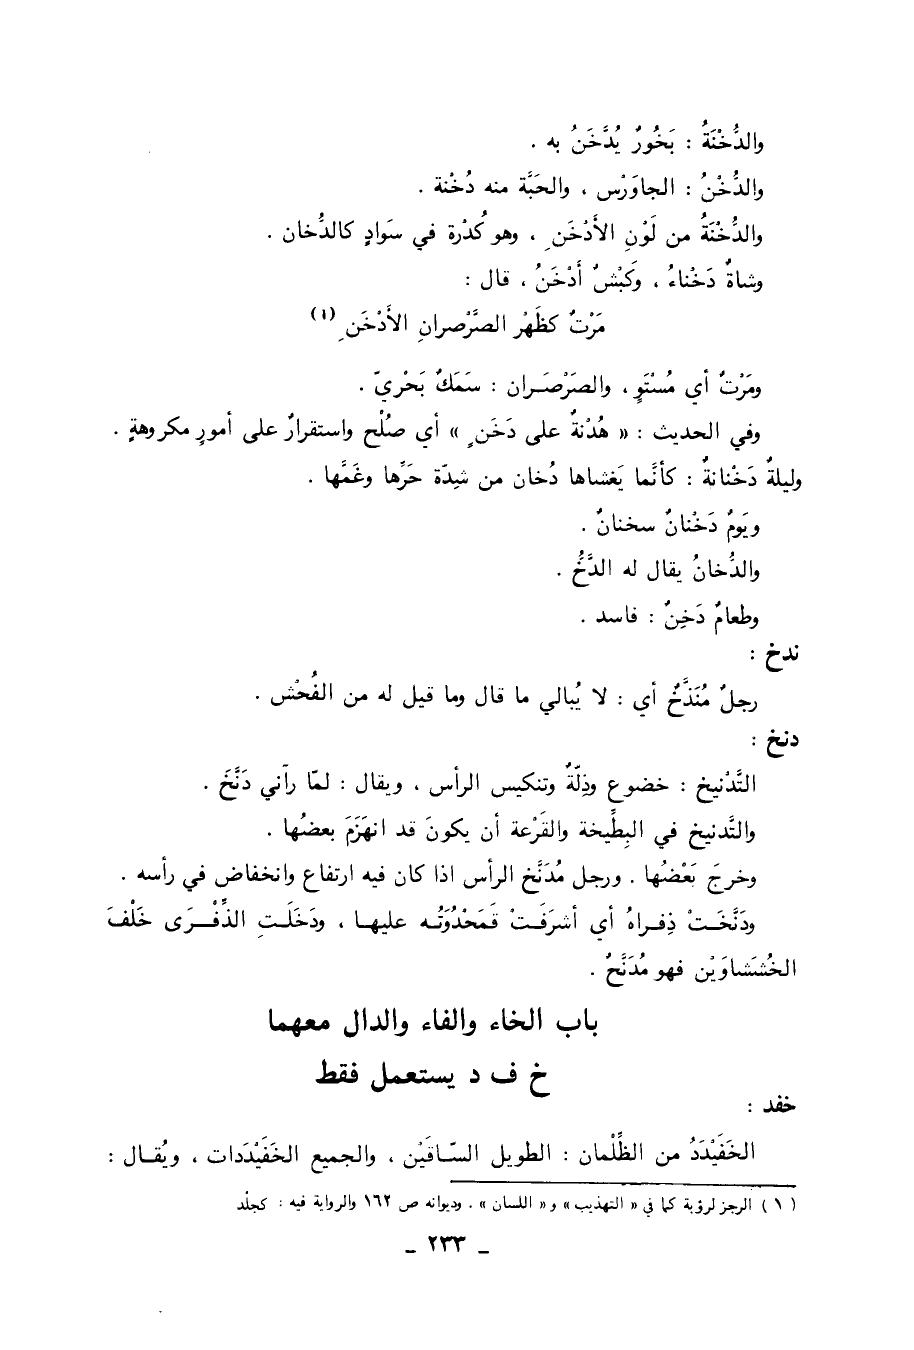 والدُّخْنَةُ : بَخُورٌ يُدَّخَنُ به .
والدُّخْنُ : الجاوَرْس ، والحَبَّة منه دُخْنة .
والدُّخْنَةُ من لَوْنِ الأَدْخَنِ ، وهو كُدْرة في سَوادٍ كالدُّخان .
وشاةٌ دَخْناءُ ، وكَبْشٌ أَدْخَنُ ، قال :
مَرْتٌ كظَهْر الصَّرْصرانِ الأَدْخَنِ (١)
ومَرْتٌ أي مُسْتَوٍ ، والصَرْصَران : سَمَكٌ بَحْريّ .
وفي الحديث : « هُدْنةٌ على دَخَنٍ » أي صُلْح واستقرارٌ على أمورٍ مكروهةٍ .
وليلةٌ دَخْنانةٌ : كأنَّما يَغشاها دُخان من شِدّة حَرِّها وغَمِّها .
ويَومٌ دَخْنانٌ سخنانٌ .
والدُّخانُ يقال له الدَّخُّ .
وطعامٌ دَخِنٌ : فاسد .
ندخ :
رجلٌ مُنَدَّخٌ أي : لا يُبالي ما قال وما قيل له من الفُحْش .
دنخ :
التَّدْنيخ : خضوع وذِلّةٌ وتنكيس الرأس ، ويقال : لمّا رآني دَنَّخَ .
والتَّدنيخ في البِطِّيخة والقَرْعة أن يكونَ قد انهَزَمَ بعضُها .
وخرجَ بَعْضُها . ورجل مُدَنَّخ الرأس اذا كان فيه ارتفاع وانخفاض في رأسه .
ودَنَّخَتْ ذِفراهُ أي أشرَفَتْ قَمَحْدُوَتُه عليها ، ودَخَلَتِ الذِّفْرَى خَلْفَ
الخُشَشاوَيْن فهو مُدَنَّخٌ .
باب الخاء والفاء والدال معهما
خ ف د يستعمل فقط
خفد :
الخَفَيْدَدُ من الظِّلْمان : الطويل السّاقَيْن ، والجميع الخَفَيْدَدات ، ويُقال :
( ١ ) الرجز لرؤبة كما في « التهذيب » و « اللسان » . وديوانه ص ١٦٢ والرواية فيه : كجلْد
ـ ٢٣٣ ـ